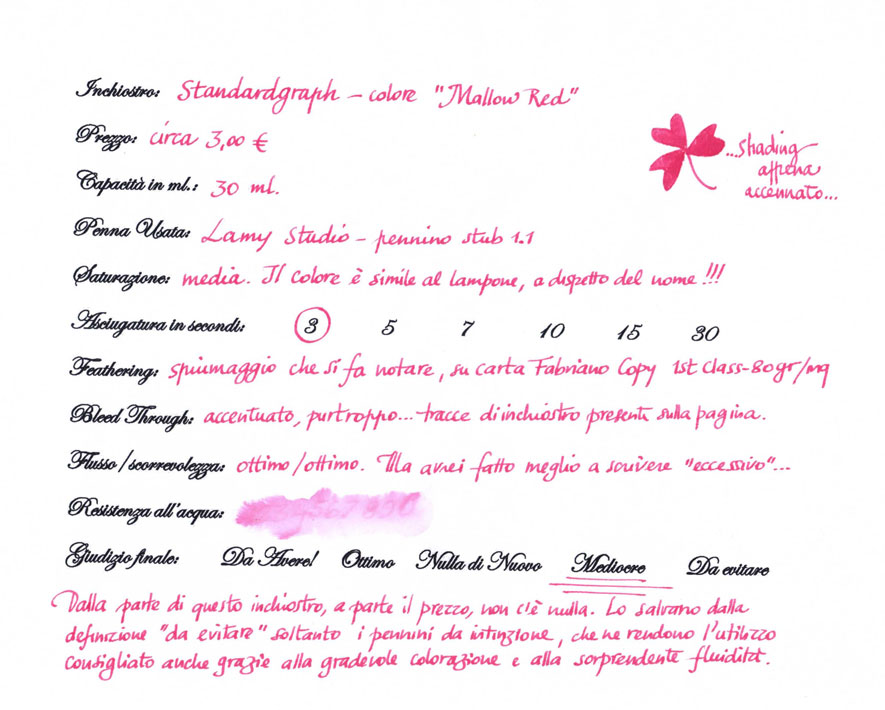 Inchiostro: Standardgraph - colore "Mallow Red"
Prezzo: circa 3,00 €
...shading
appena
accennato...
Capacità in ml.: 30 ml.
Penna Usata: Lamy Studio - pennino stub 1.1
Saturazione: media. Il colore è simile al lampone, a dispetto del nome!!!
Asciugatura in secondi: 3 5 7 10 15 30
Feathering: spiumaggio che si fa notare, su carta Fabriano Copy 1st Class-80gr/mq
Bleed Through: accentuato, purtroppo... tracce di inchiostro presenti sulla pagina.
Flusso/scorrevolezza: ottimo/ottimo. Ma avrei fatto meglio a scrivere "eccessivo"...
Resistenza all'acqua:
Giudizio finale: Da Avere! Ottimo Nulla di Nuovo Mediocre Da evitare
Dalla parte di questo inchiostro, a parte il prezzo, non c'è nulla. Lo salvano dalla
definizione "da evitare" soltanto i pennini da intinzione, che ne rendono l'utilizzo
consigliato anche grazie alla gradevole colorazione e alla sorprendente fluidità.